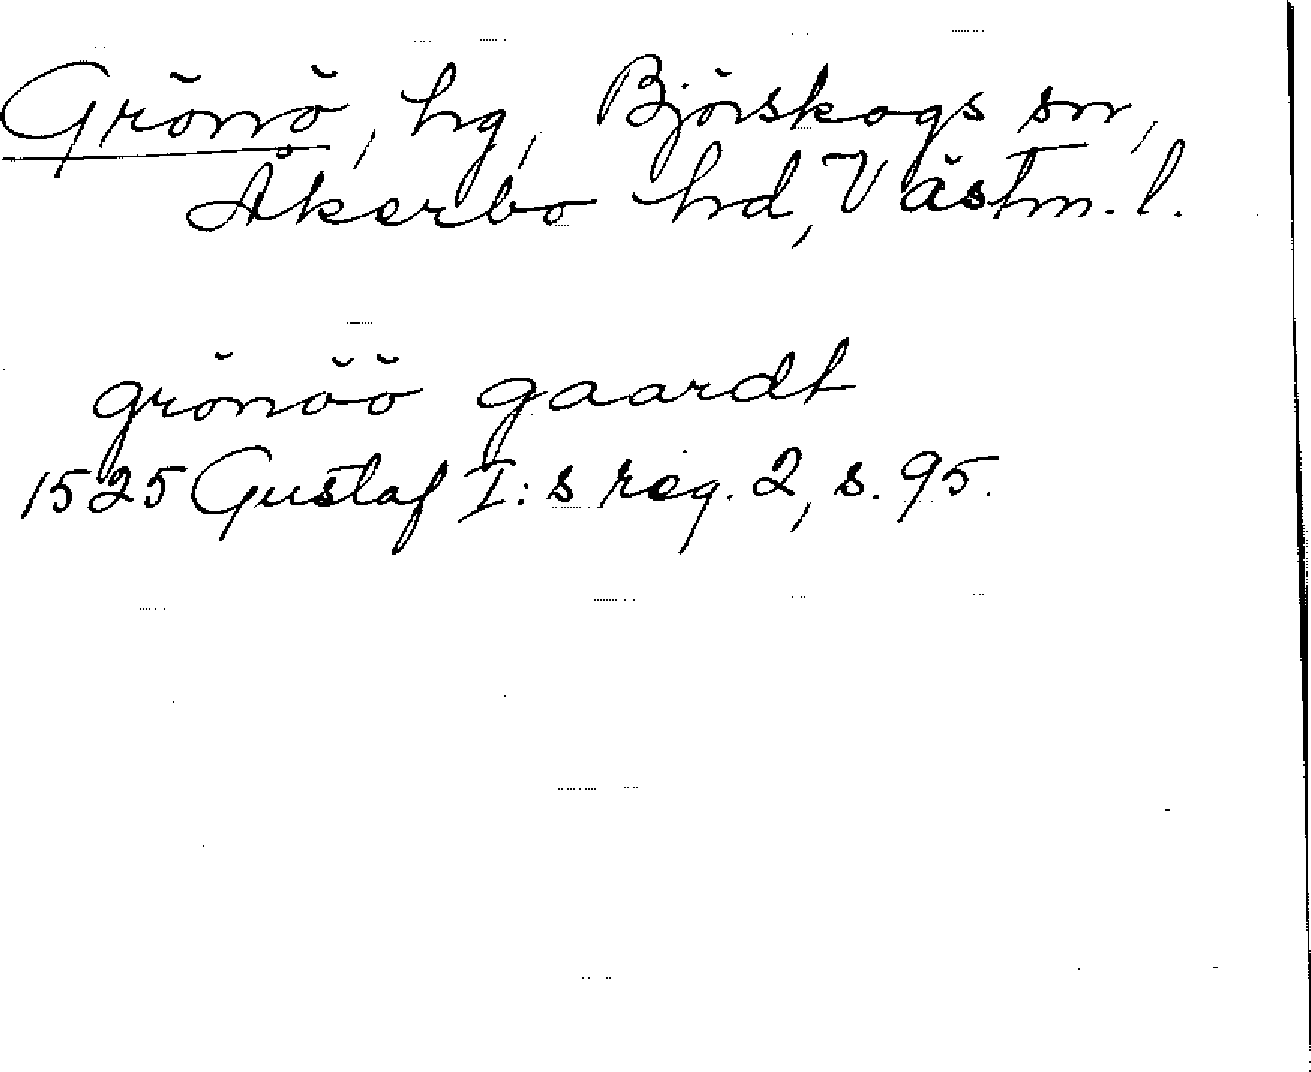 Grönö, hg, Björskogs sn,
Åkerbo hd, Västm. l.
grönöö gaardt
1525 Gustaf I:s reg. 2, s. 95.